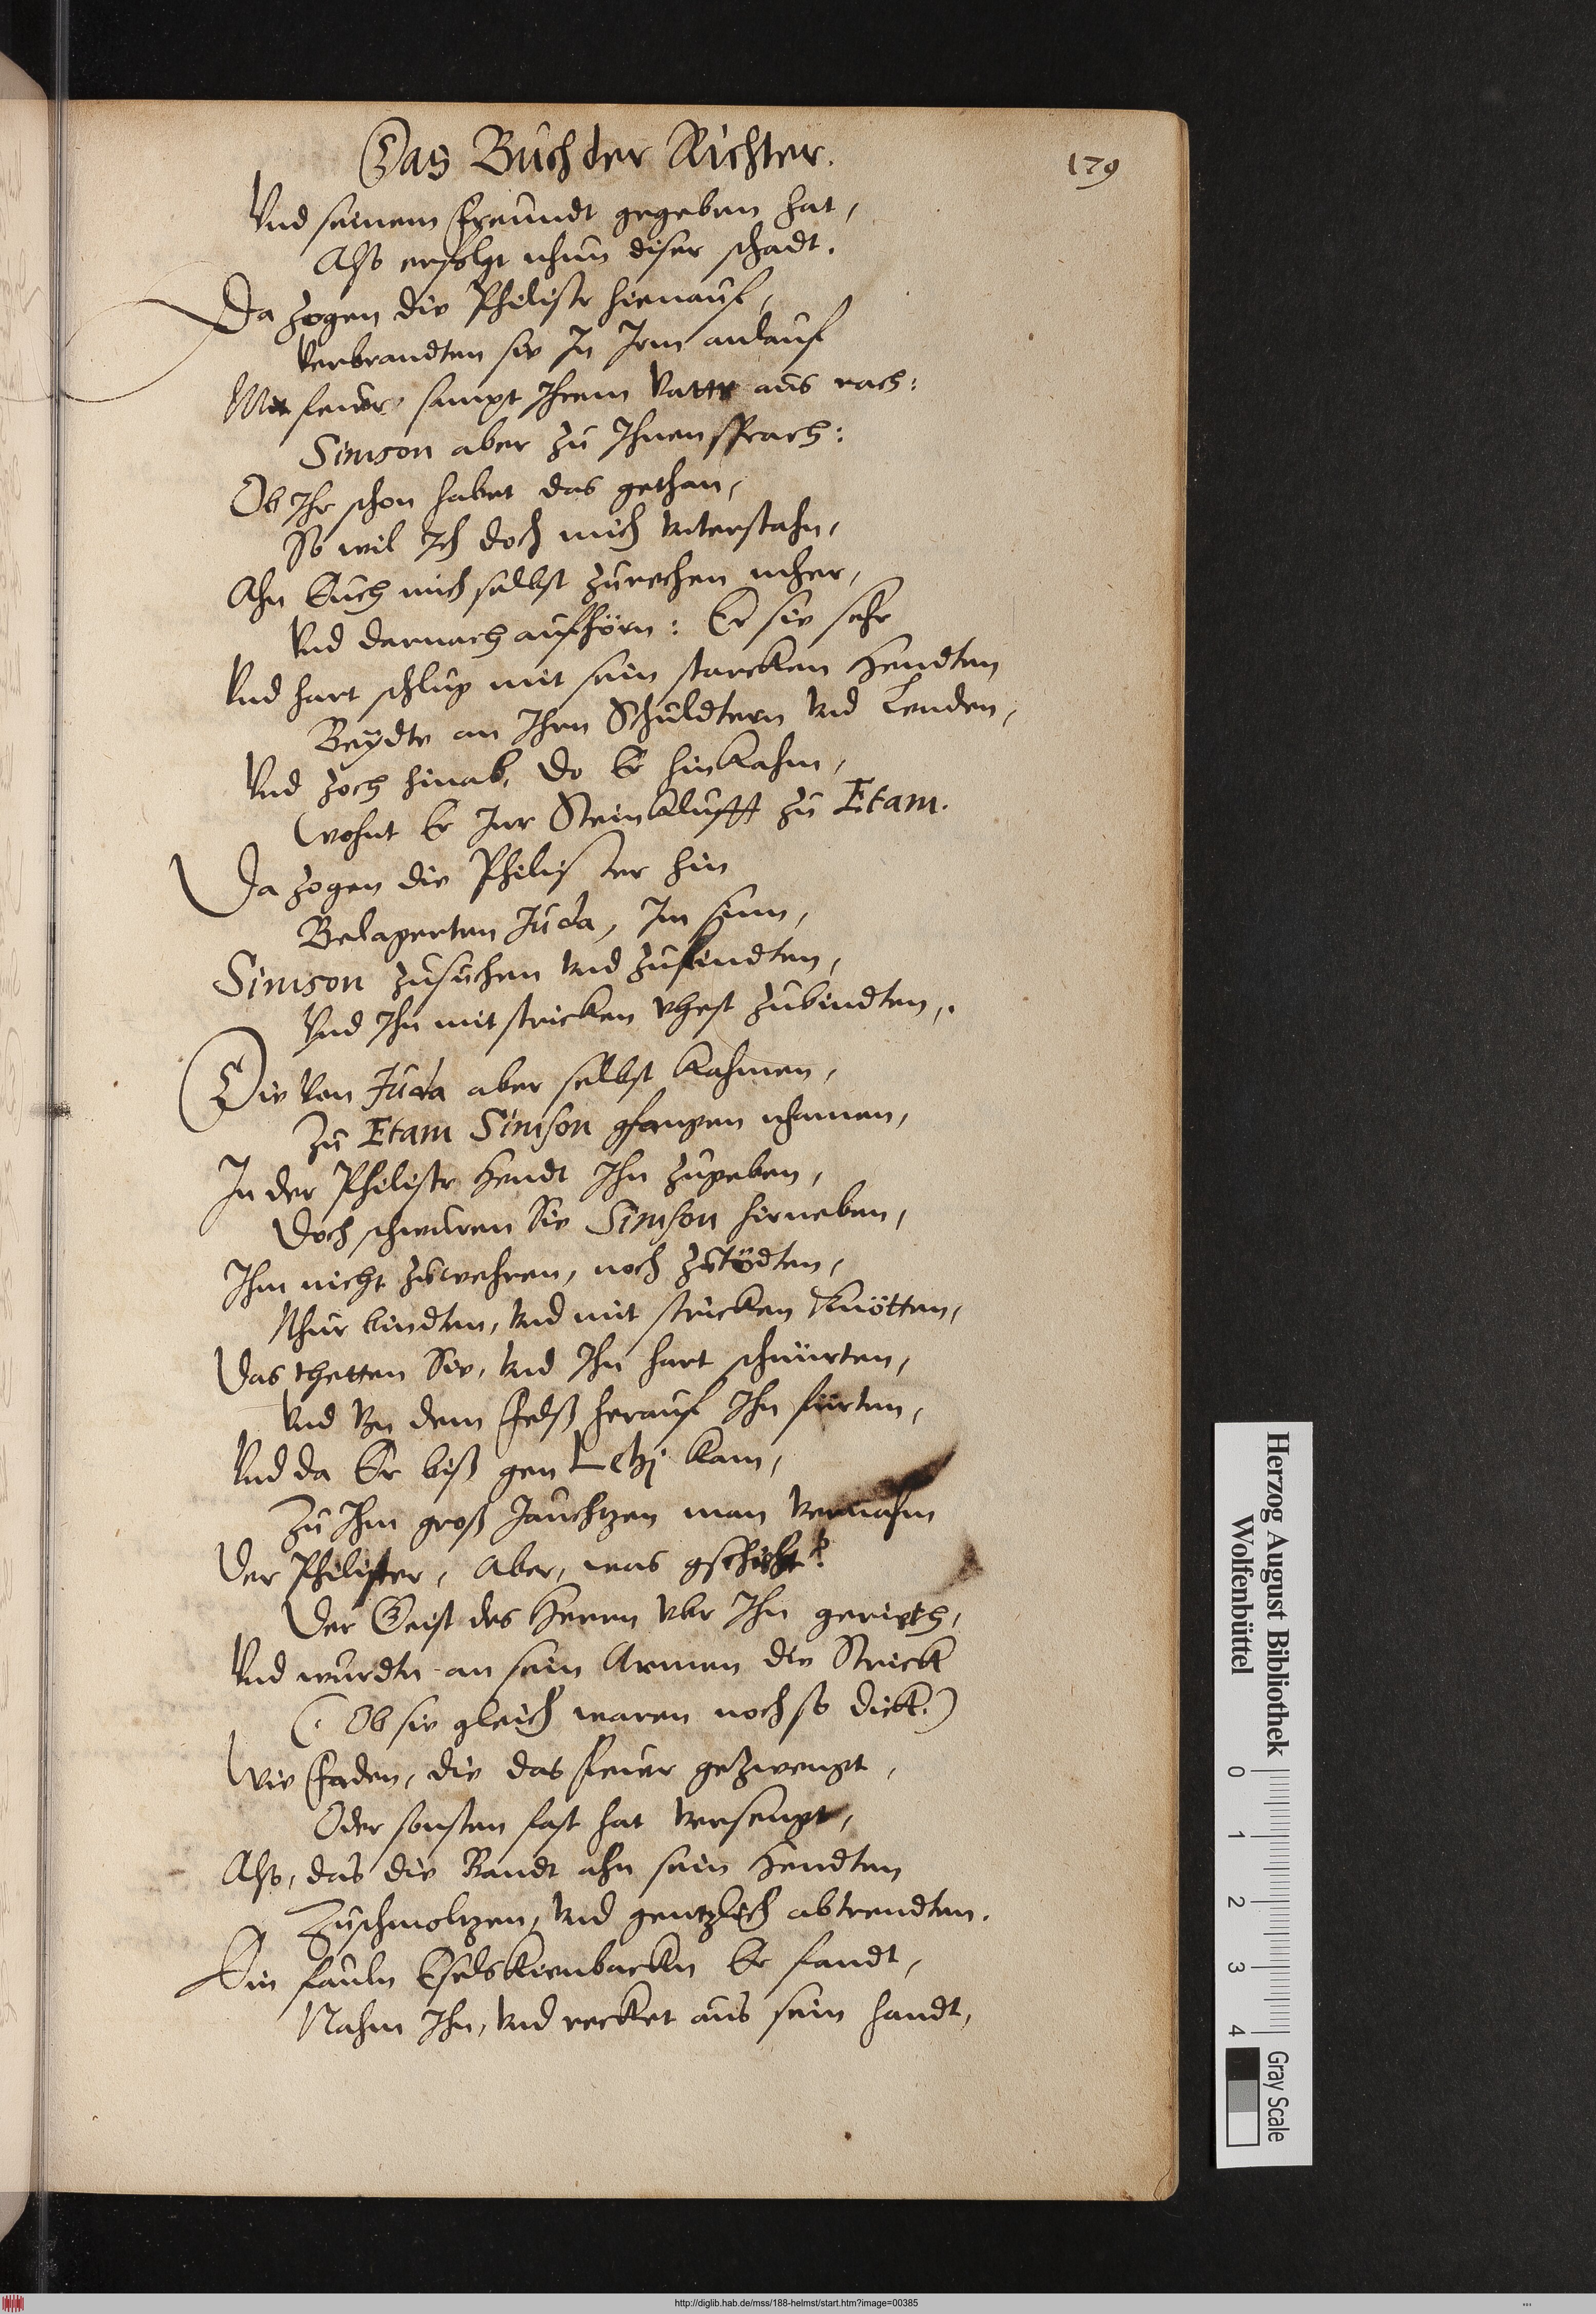 Das Buch der Richter.
179
Vnd seinem Freundt gegeben hat,
Also erfolgt nhun diser schadt.
Da zogen die Philistr hienauf,
Verbrandten sie In Irm anlauf
Mit feuer sampt Ihrem Vattr aus rach:
Simson aber zu Ihnen sprach:
Ob Ihr schon habet das gethan,
So wil Ich doch mich vnterstahn,
Ahn Euch mich selbst zurechen mher,
Vnd darnach aufhörn: Er sie sehr
Vnd hart schlug mit sein starcken Hendten
Beydte an Ihrn Schuldtern vnd Lenden,
Vnd zoch hinab, do Er hinkahm,
Wohnt Er Inr Steinklufft zu Etam.
Da zogen die Philister hin
Belagerten Juda, Im sinn,
Simson zusuchen vnd zufindten,
Vnd Ihn mit stricken vhest zubindten,.
Die von Juda aber selbst kahmen,
Zu Etam Simson gfangen nhamen,
In der Philistr Hendt Ihn zugeben,
Doch schwuren Sie Simson hierneben,
Ihm nicht zuwehren, noch zutödten,
Nhur bindten, vnd mit stricken knötten,
Das thetten Sie, vnd Ihn hart schnürten,
Vnd Vn dem Felß herauf Ihn fürten,
Vnd da Er biß gen Lehj kam,
Zu Ihm groß Jauchtzen man vernahm
Der Philister, Aber, was gschicht?
Der Geist des Herrn vbr Ihn gerieth,
Vnd wurdtn an sein Armen die Strick
(: Ob sie gleich waren noch so dick.)
Wie Faden, die das feuer gezwengt,
Oder sonsten fast hat versengt,
Also, das die Bandt ahn sein Hendten
Zuschmoltzen, vnd gentzlich abtrendten.
Ein fauln Eselskienbackn Er fandt,
Nahm Ihn, vnd recket aus sein handt,
Herzog August Bibliothek
Wolfenbüttel
0 1 2 3 4
Gray Scale
http://diglib.hab.de/mss/188-helmst/start.htm?image=00385